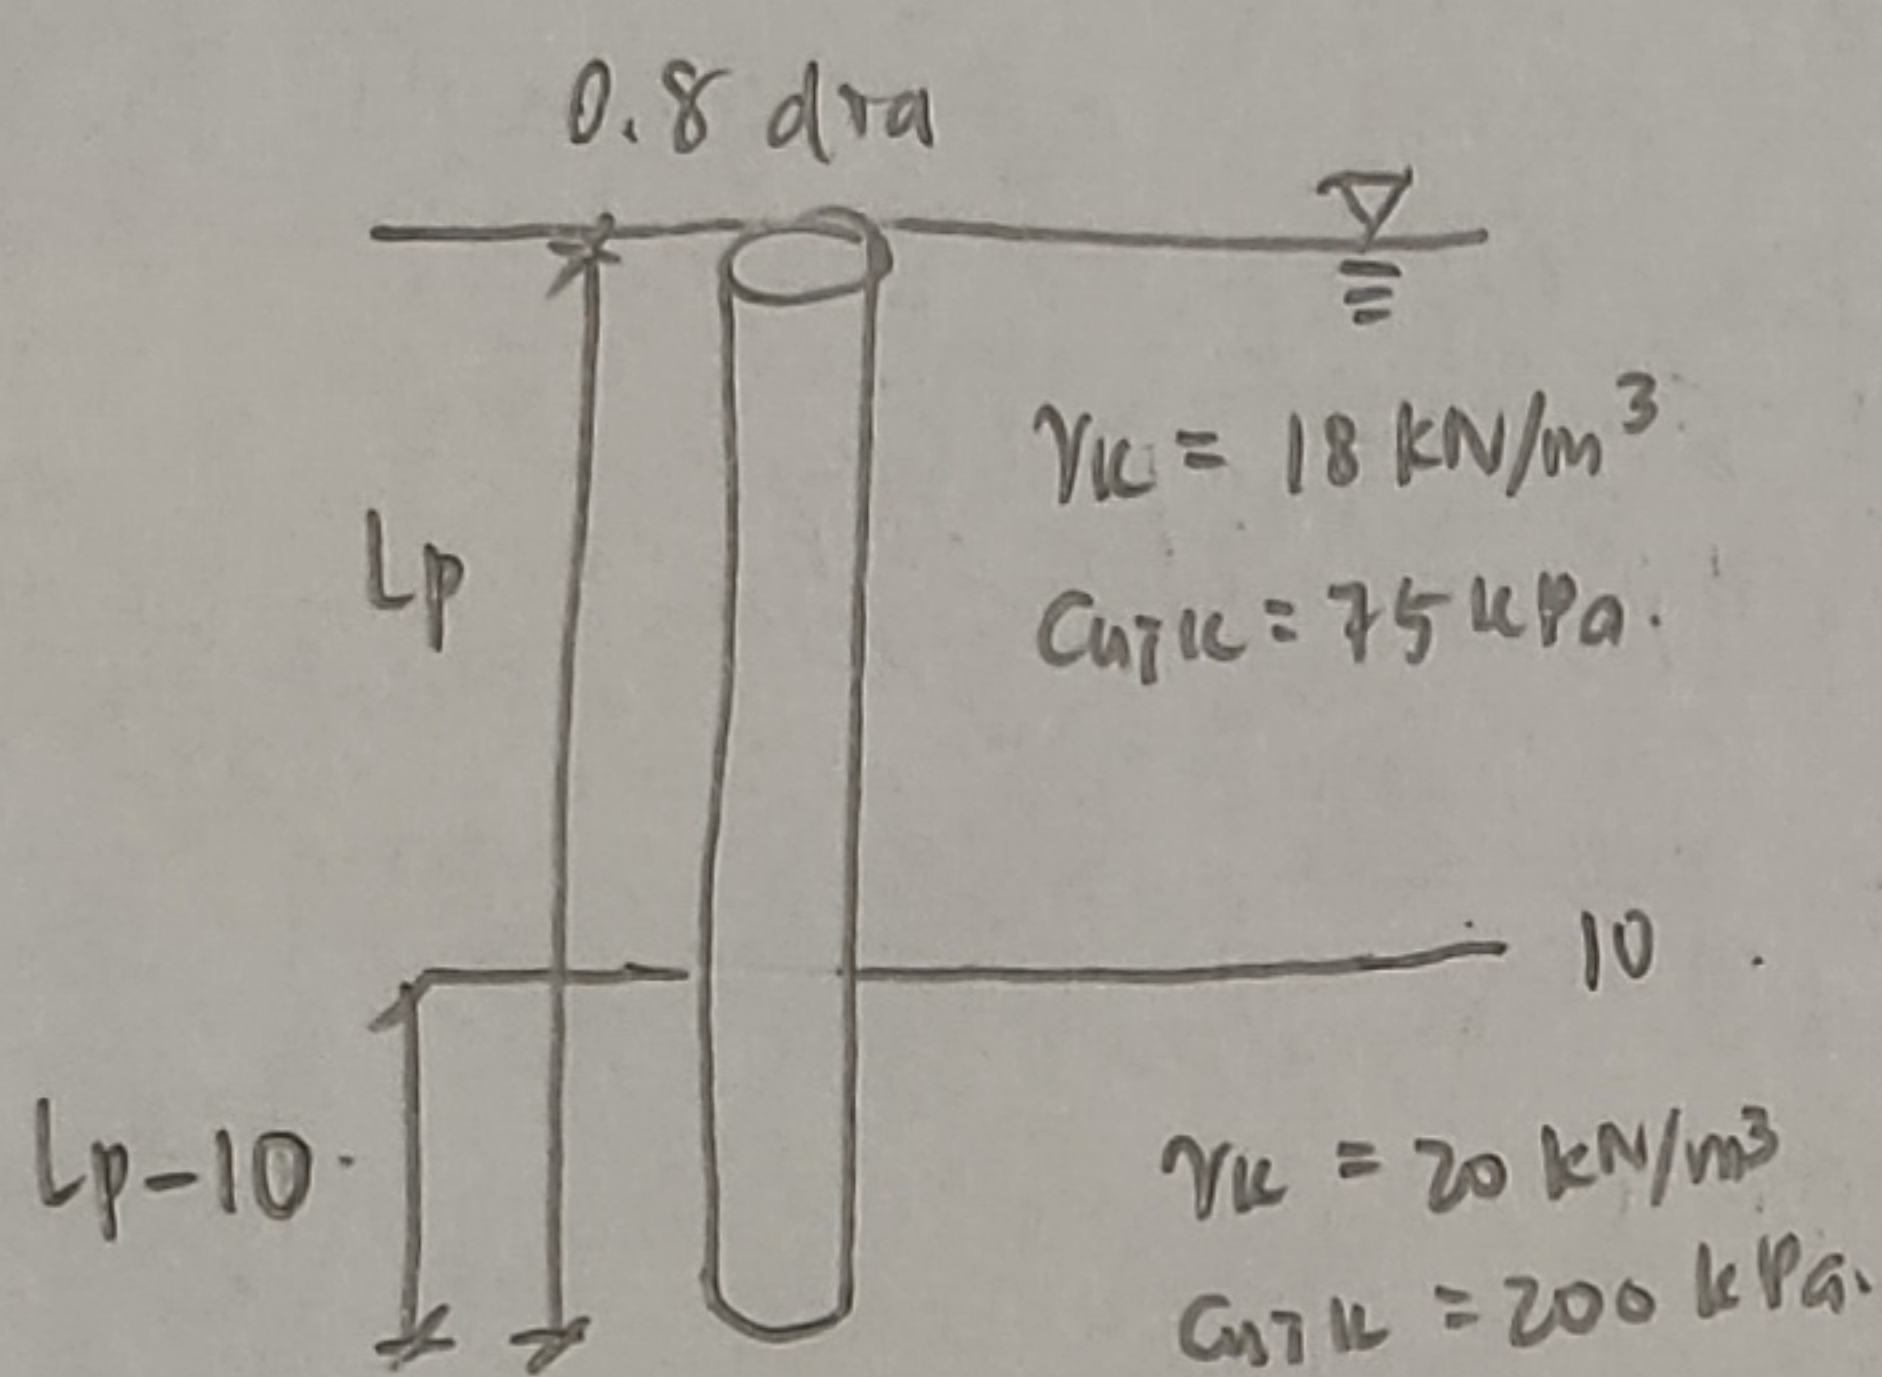 0.8 dia
γk = 18 kN/m³
Lp
Cu;k = 75 kPa.
10
Lp-10
γk = 20 kN/m³
Cu;k = 200 kPa.